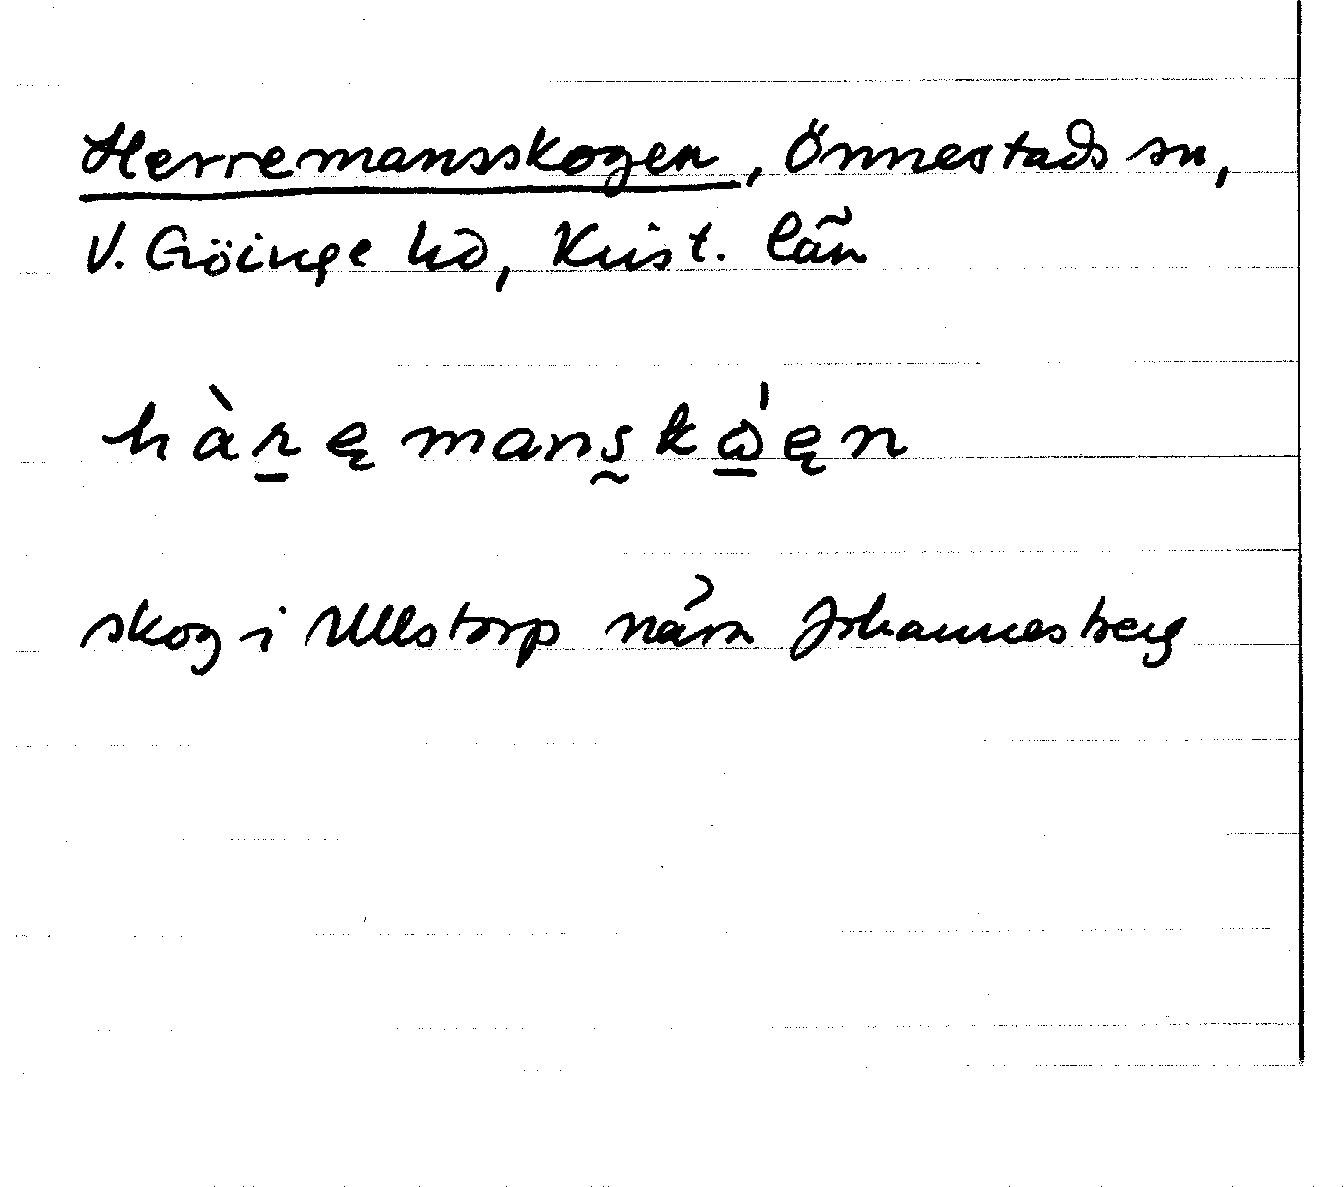 Herremansskogen, Önnestads sn,
V. Göinge hd, Krist. län
hàr̠ęmans̰kώ̠ęn
skog i Ullstorp nära Johannesberg